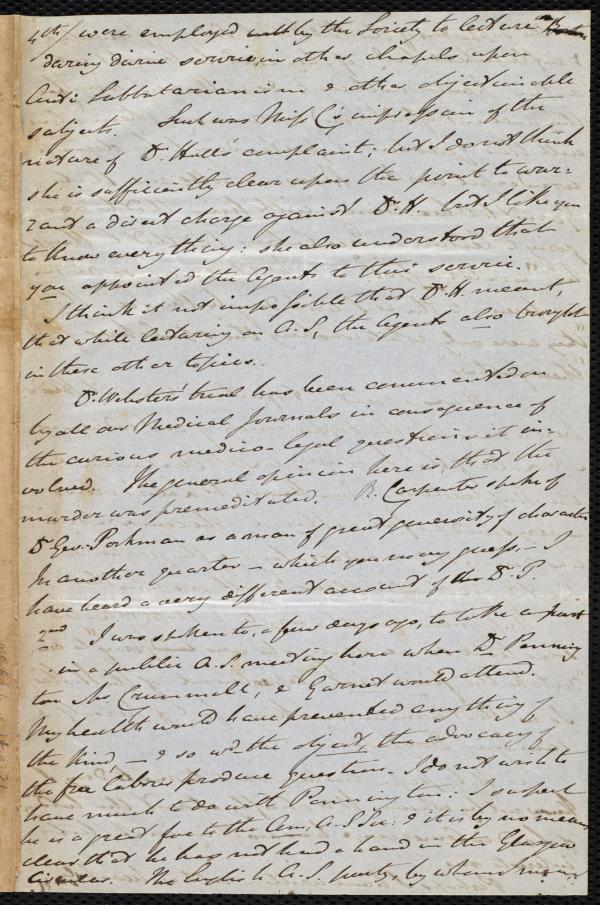 4th/ were employed by the Society to lecture
during divine service, in other chapels upon
Anti Sabbatarianism & other objectionable
subjects. Such was Miss C's impression of the
nature of Dr. Hull's complaint; but I do not think
she is sufficiently clear upon the point to war=
rant a direct charge against Dr. H. but I like you
to know everything: she also understood that
you appointed the Agents to this service.
I think it not impossible that Dr. H. meant,
that while lecturing on A.S., the Agents also brought
in these other topics.
Dr. Webster's trial has been commented on
by all our Medical Journals in consequence of
the curious medico-legal questions it in=
volved. The general opinion here is, that the
murder was premeditated. R. Carpenter spoke of
Dr Geo. Parkman as a man of great generosity of character
In another quarter – which you may guess, – I
have heard a very different account of the Dr. P.
2nd I was spoken to, a few days ago, to take a part
in a public A.S. meeting here when Dr Penning
ton Mr Crummell, & Garnet would attend.
My health would have prevented anything of
the kind, – & so wd the object, the advocacy of
the free labour produce question. I do not wish to
have much to do with Pennington: I suspect
he is a great foe to the Am. A.S. Soc: & it is by no means
clear that he has not had a hand in the Glasgow
circular. The English A.S. party, by whom